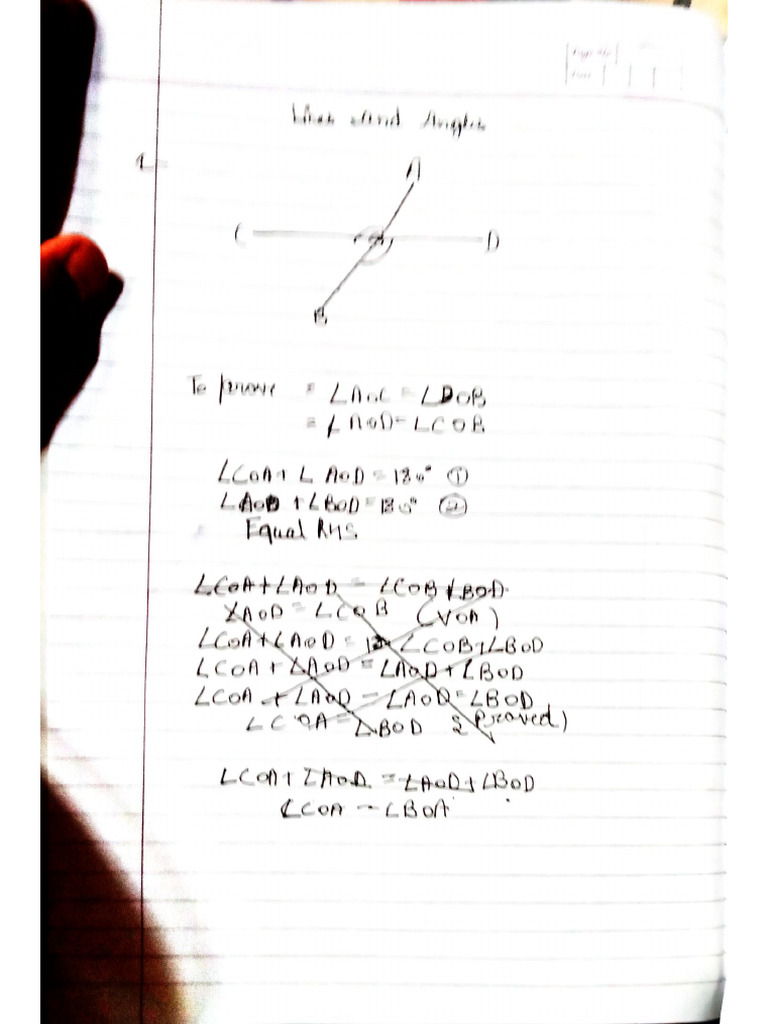 Lines And Angles
A
C
D
B
To prove = ∠AOC = ∠DOB
= ∠AOD = ∠COB
∠COA + ∠AOD = 180° ①
∠AOD + ∠BOD = 180° ②
Equal RHS
∠COA + ∠AOD = ∠COB + ∠BOD
∠AOD = ∠COB (VOA)
∠COA + ∠AOD = ∠COB + ∠BOD
∠COA + ∠AOD = ∠AOD + ∠BOD
∠COA + ∠AOD - ∠AOD = ∠BOD
∠COA = ∠BOD Proved)
∠COA + ∠AOD = ∠AOD + ∠BOD
∠COA = ∠BOA